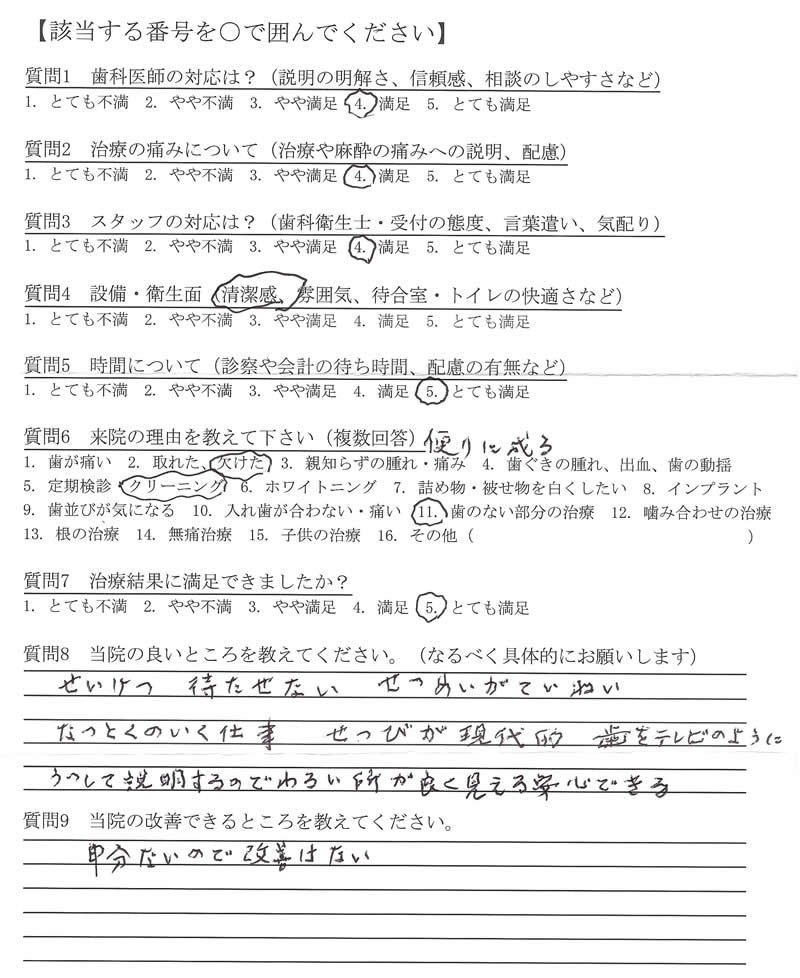 【該当する番号を〇で囲んでください】
質問1 歯科医師の対応は？（説明の明解さ、信頼感、相談のしやすさなど）
1. とても不満 2. やや不満 3. やや満足 4. 満足 5. とても満足
質問2 治療の痛みについて（治療や麻酔の痛みへの説明、配慮）
1. とても不満 2. やや不満 3. やや満足 4. 満足 5. とても満足
質問3 スタッフの対応は？（歯科衛生士・受付の態度、言葉遣い、気配り）
1. とても不満 2. やや不満 3. やや満足 4. 満足 5. とても満足
質問4 設備・衛生面（清潔感、雰囲気、待合室・トイレの快適さなど）
1. とても不満 2. やや不満 3. やや満足 4. 満足 5. とても満足
質問5 時間について（診察や会計の待ち時間、配慮の有無など）
1. とても不満 2. やや不満 3. やや満足 4. 満足 5. とても満足
質問6 来院の理由を教えて下さい（複数回答）便りに成る
1. 歯が痛い 2. 取れた、欠けた 3. 親知らずの腫れ・痛み 4. 歯ぐきの腫れ、出血、歯の動揺
5. 定期検診・クリーニング 6. ホワイトニング 7. 詰め物・被せ物を白くしたい 8. インプラント
9. 歯並びが気になる 10. 入れ歯が合わない・痛い 11. 歯のない部分の治療 12. 噛み合わせの治療
13. 根の治療 14. 無痛治療 15. 子供の治療 16. その他（ ）
質問7 治療結果に満足できましたか？
1. とても不満 2. やや不満 3. やや満足 4. 満足 5. とても満足
質問8 当院の良いところを教えてください。（なるべく具体的にお願いします）
せいけつ 待たせない せつめいがていねい
なっとくのいく仕事 せつびが現代的 歯をテレビのように
うつして説明するのでわるい所が良く見える安心できる
質問9 当院の改善できるところを教えてください。
申分ないので改善はない